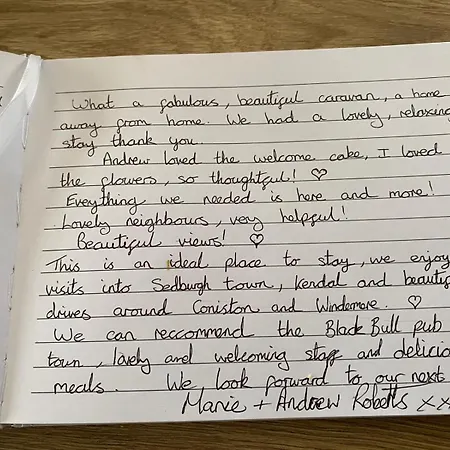 What a fabulous, beautiful caravan, a home
away from home. We had a lovely, relaxing
stay thank you.
Andrew loved the welcome cake, I loved
the flowers, so thoughtful! ♡
Everything we needed is here and more!
Lovely neighbours, very helpful!
Beautiful views! ♡
This is an ideal place to stay, we enjoy
visits into Sedburgh town, Kendal and beautif
drives around Coniston and Windermere. ♡
We can reccommend the Black Bull pub
town, lovely and welcoming staff and delicio
meals. We look forward to our next
Marie + Andrew Roberts xx